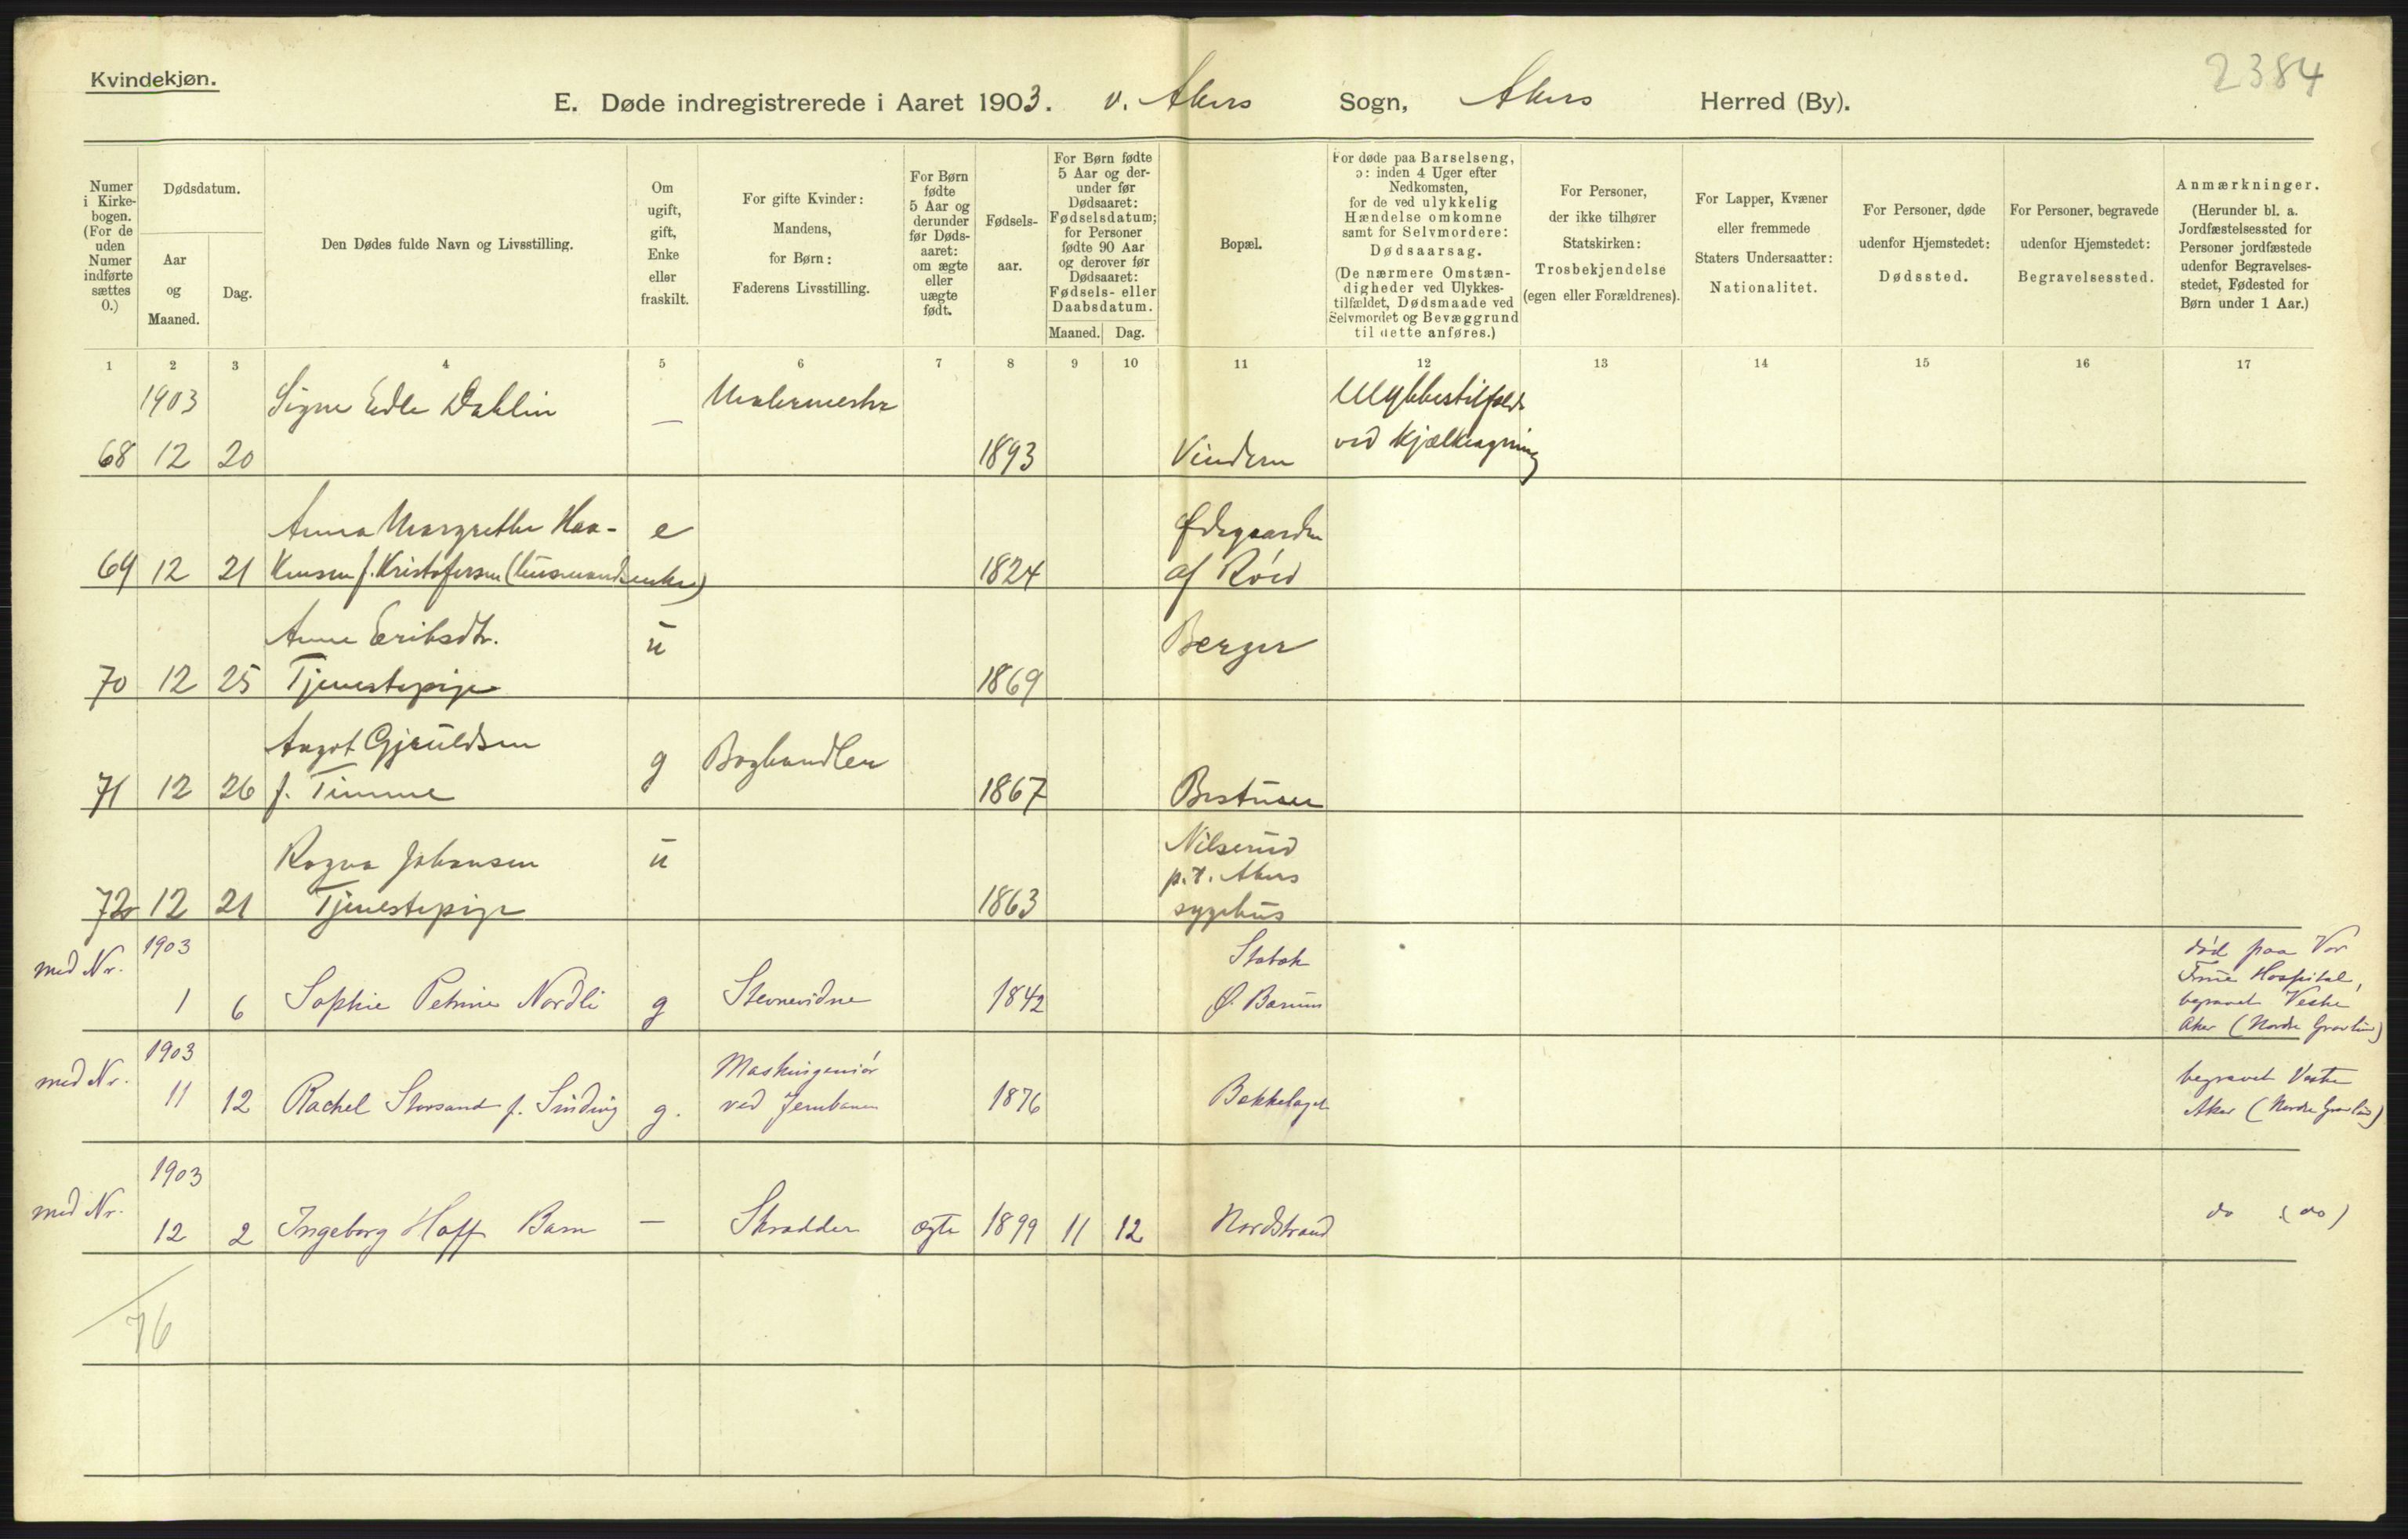 Kvindekjøn.
2384
E. Døde indregistrerede i Aaret 1903. v. Akers Sogn, Akers Herred (By).
Numer i Kirke-bogen. (For de uden Numer indførte sættes 0.)
Dødsdatum.
Aar og Maaned.
Dag.
Den Dødes fulde Navn og Livsstilling.
Om ugift, gift, Enke eller fraskilt.
For gifte Kvinder: Mandens, for Børn: Faderens Livsstilling.
For Børn fødte 5 Aar og derunder før Døds-aaret: om ægte eller uægte født.
Fødsels-aar.
For Børn fødte 5 Aar og der-under før Dødsaaret: Fødselsdatum; for Personer fødte 90 Aar og derover før Dødsaaret: Fødsels- eller Daabsdatum.
Maaned. Dag.
Bopæl.
For døde paa Barselseng, ɔ: inden 4 Uger efter Nedkomsten, for de ved ulykkelig Hændelse omkomne samt for Selvmordere: Dødsaarsag. (De nærmere Omstæn-digheder ved Ulykkes-tilfældet, Dødsmaade ved Selvmordet og Bevæggrund til dette anføres.)
For Personer, der ikke tilhører Statskirken: Trosbekjendelse (egen eller Forældrenes).
For Lapper, Kvæner eller fremmede Staters Undersaatter: Nationalitet.
For Personer, døde udenfor Hjemstedet: Dødssted.
For Personer, begravede udenfor Hjemstedet: Begravelsessted.
Anmærkninger. (Herunder bl. a. Jordfæstelsessted for Personer jordfæstede udenfor Begravelses-stedet, Fødested for Børn under 1 Aar.)
1 2 3 4 5 6 7 8 9 10 11 12 13 14 15 16 17
1903 Signe Edle Dahlin — Malermester Ulykkestilfælde
68 12 20 1893 Vindern ved Kjælkeagning
Anna Margrethe Haa- e Ødegaarden
69 12 21 kensen f. Kristofersen (Husmandsenke) 1824 af Röid
Anne Eriksdtr. u Berger
70 12 25 Tjenestepige 1869
Aagot Gjeruldsen g Boghandler
71 12 26 f. Timme 1867 Bestuen
Ragna Johansen u Nilserud
p.t. Akers
72 12 21 Tjenestepige 1863 sygehus
med Nr. 1903 Stabæk død paa Vor
Frue Hospital,
1 6 Sophie Petrine Nordli g Stevnevidne 1842 Ø. Bærum begravet Vestre
Aker (Nordre Gravlund)
med Nr. 1903 Maskiningeniör begravet Vestre
11 12 Rachel Storsand f. Sinding g. ved Jernbanen 1876 Bækkelaget Aker (Nordre Gravlund)
1903
med Nr. 12 2 Ingeborg Hoff Barn — Skrædder ægte 1899 11 12 Nordstrand do (do)
76